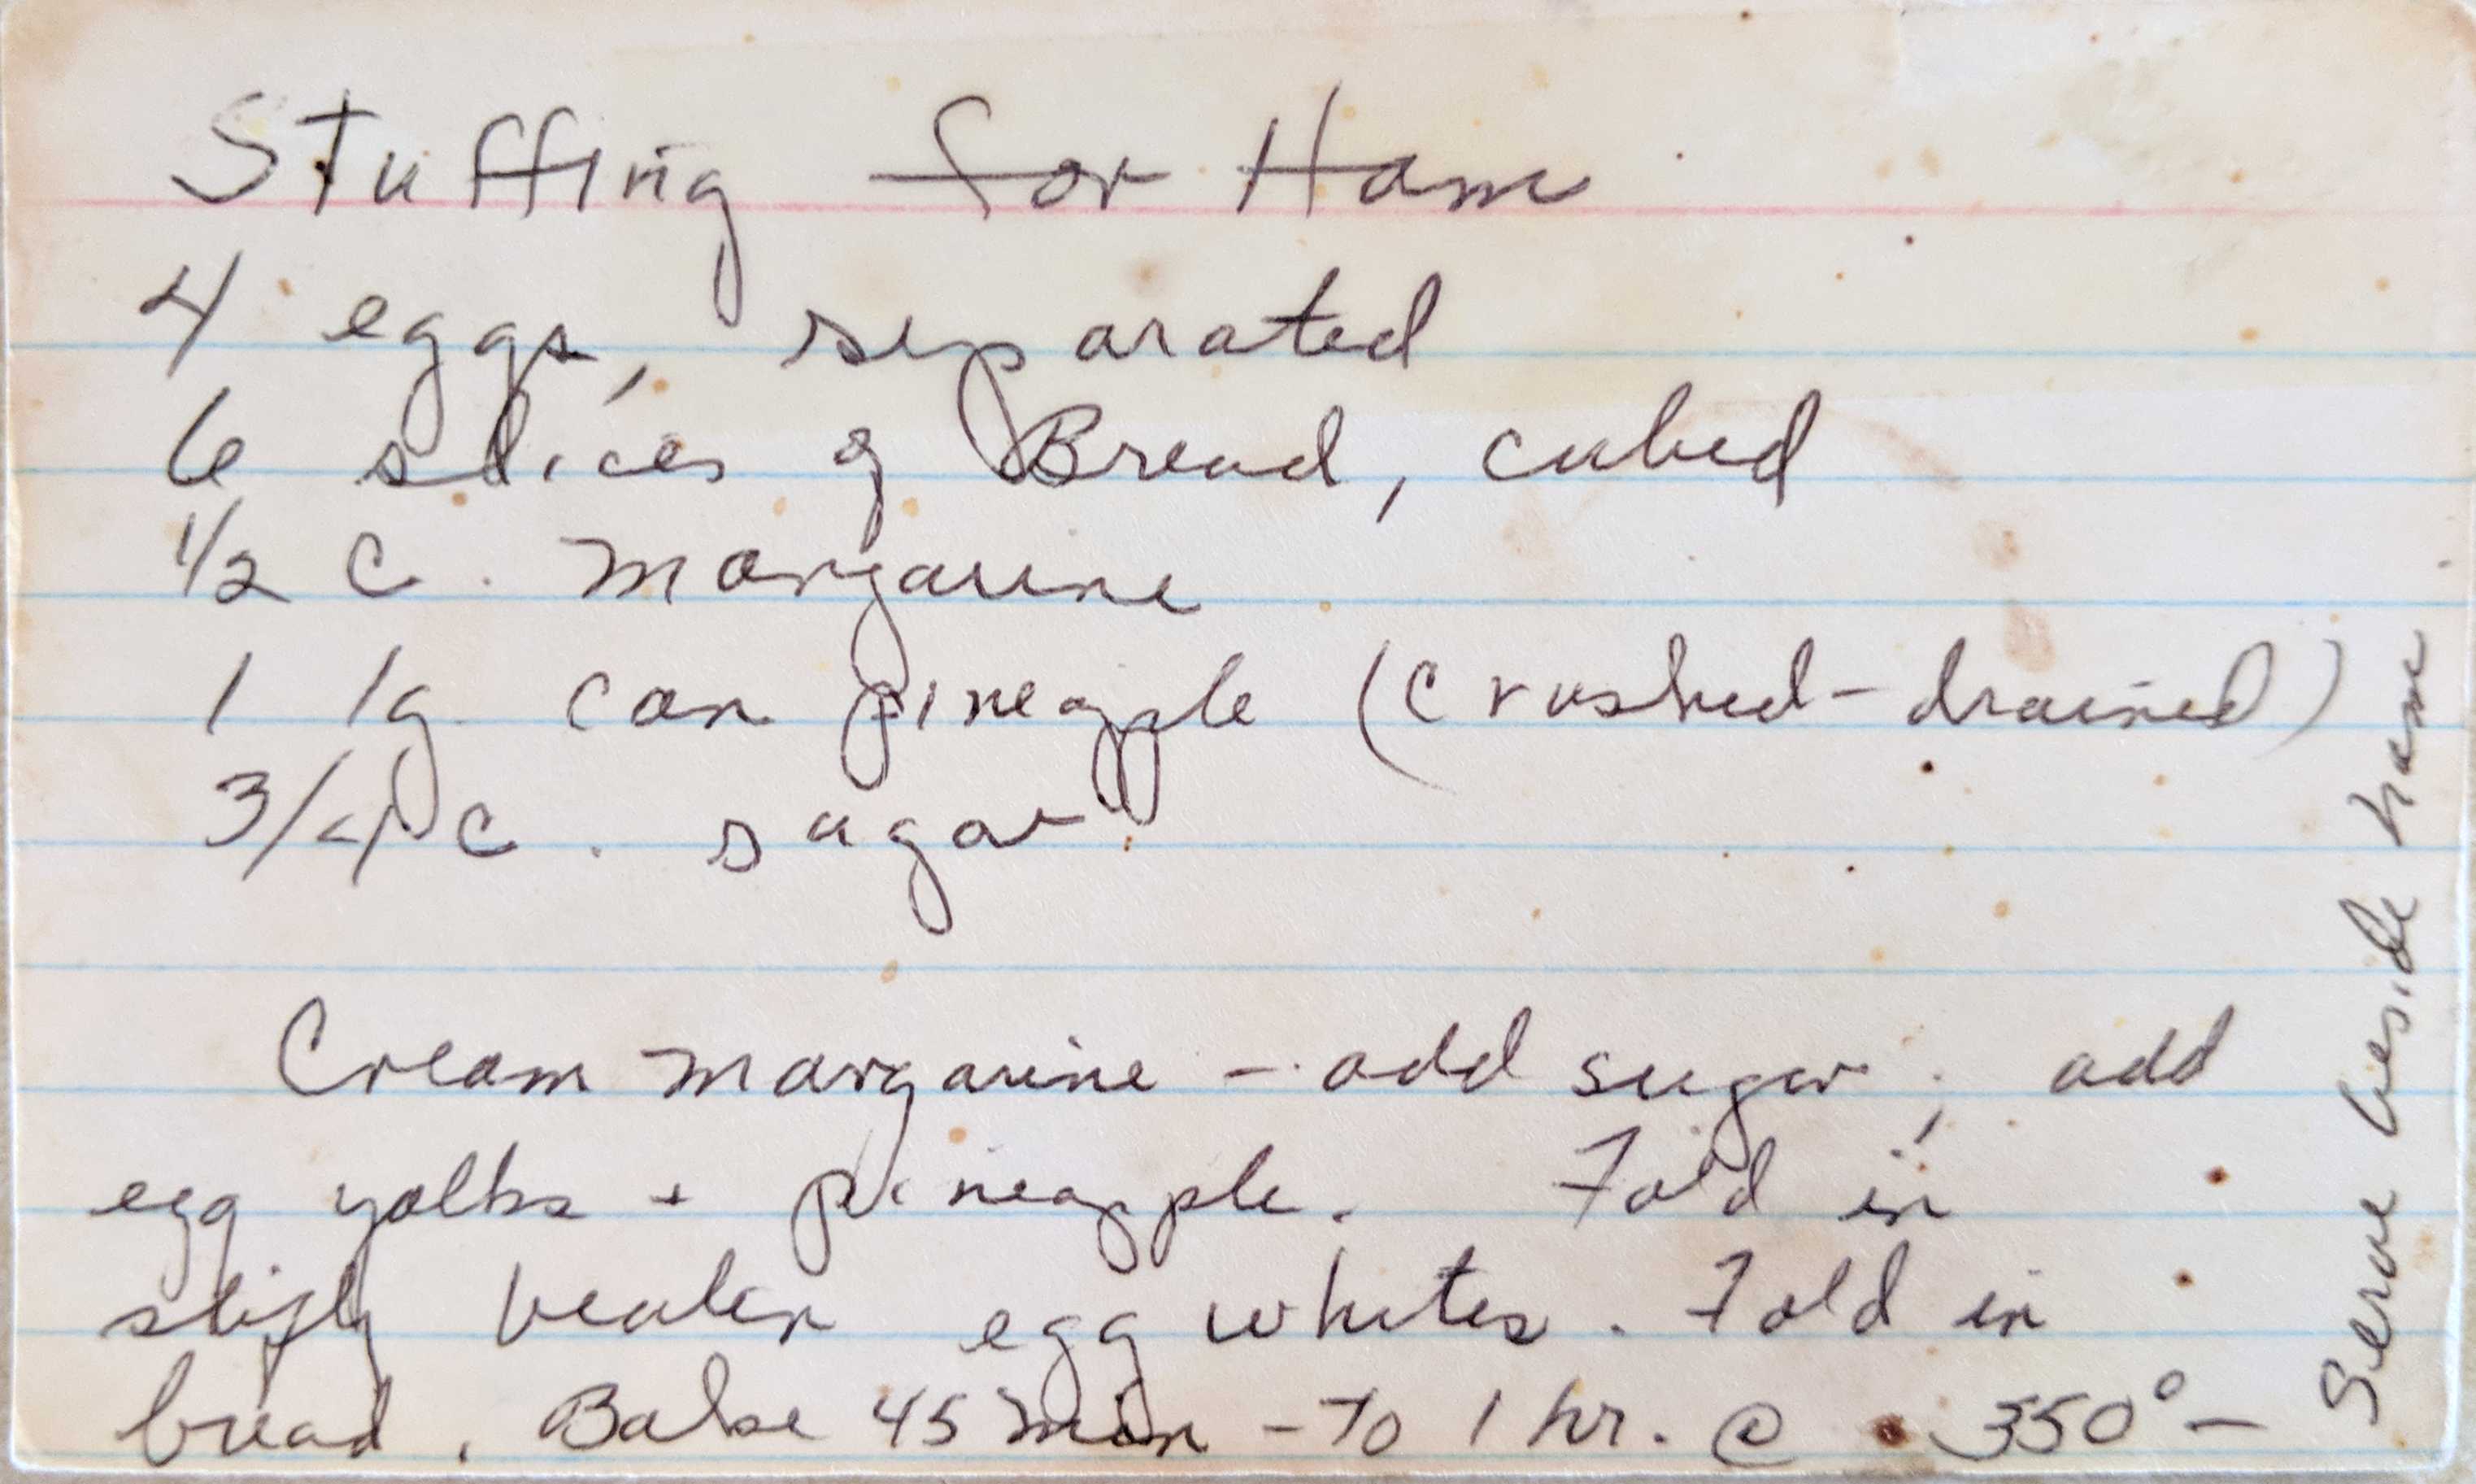 Stuffing for Ham
4 eggs, separated
6 slices of Bread, cubed
1/2 c. margarine
1 lg. can pineapple (crushed-drained)
3/4 c. sugar
Cream margarine - add sugar; add
egg yolks + pineapple. Fold in
stifly beaten egg whites. Fold in
bread. Bake 45 min - to 1 hr. @ 350° -
Serve beside ham.